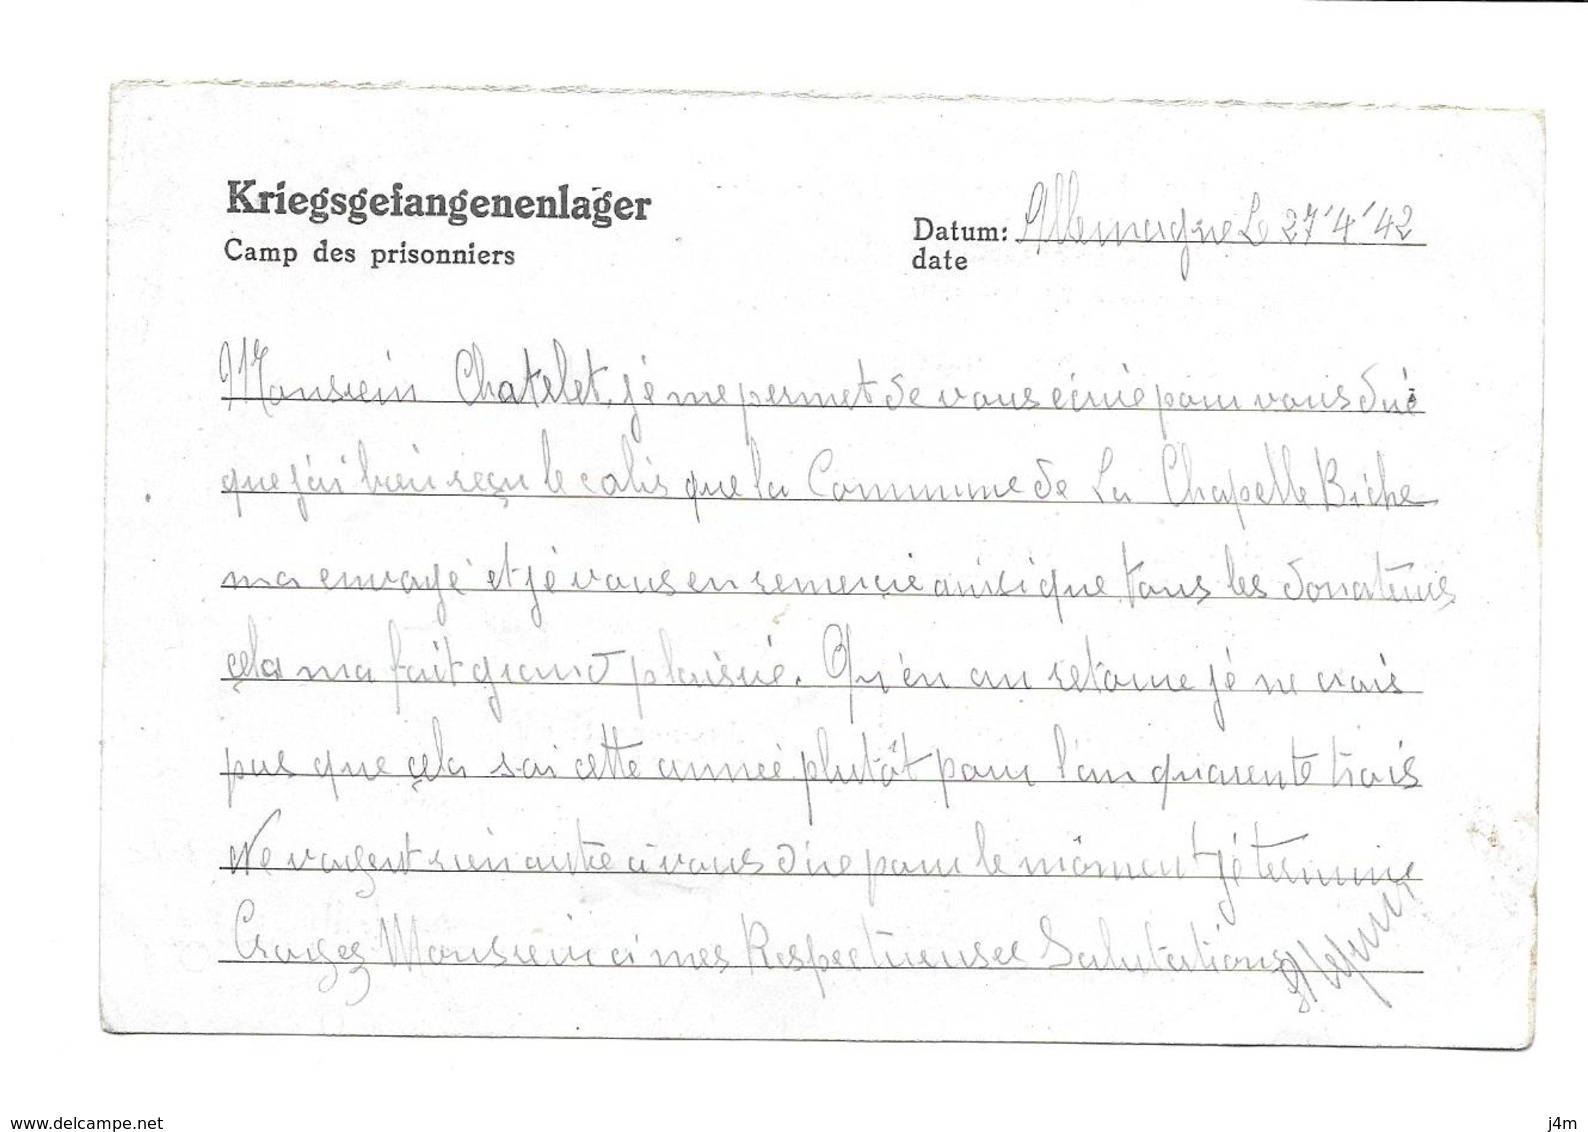 Kriegsgefangenenlager
Camp des prisonniers
Datum: Allemagne Le 27'4'42
date
Monsieur Chatelet, je me permet de vous écrire pour vous dire
que j'ai bien reçu le colis que la Commune de La Chapelle Biche
ma envoyé et je vous en remercie ainsi que tous les donateurs
çela ma fait grand plaisir. Qu'en au retour je ne crois
pas que çela soi cette année plutôt pour l'an quarente trois
Ne voyent rien autre à vous dire pour le môment je termine
Croyez Monsieur à mes Respectueuses Salutations
www.delcampe.net
j4m